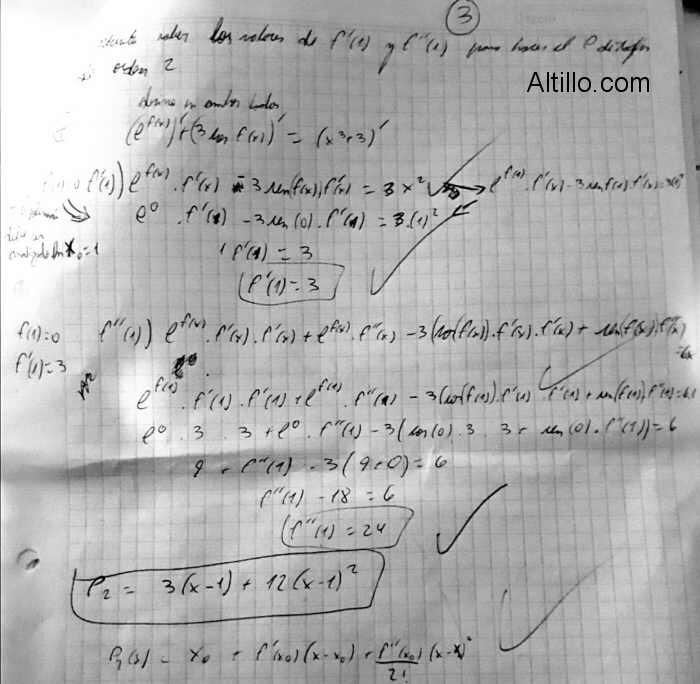 3
los valores de f'(1) y f''(1) para hacer el P de Taylor
de orden 2
Altillo.com
derivo en ambos lados
(e^f(x))' + (3 cos f(x))' = (x³+3)'
f'(1)) e^f(x) . f'(x) - 3 sen(f(x)).f'(x) = 3x² → e^f(x) . f'(x) - 3 sen f(x) . f'(x) = 3x²
e⁰ . f'(1) - 3 sen(0) . f'(1) = 3.(1)²
x₀=1
1 f'(1) = 3
f'(1) = 3
f(1)=0 f''(1)) e^f(x) . f'(x) . f'(x) + e^f(x) . f''(x) - 3(cos(f(x)).f'(x).f'(x) + sen(f(x)).f''(x)) = 6x
f'(1)=3
e^f(1) . f'(1) . f'(1) + e^f(1) . f''(1) - 3(cos(f(1)).f'(1) . f'(1) + sen(f(1)).f''(1)) = 6.1
e⁰ . 3 . 3 + e⁰ . f''(1) - 3(cos(0) . 3 . 3 + sen(0) . f''(1)) = 6
9 + f''(1) - 3(9+0) = 6
f''(1) - 18 = 6
f''(1) = 24
P₂ = 3(x-1) + 12(x-1)²
P₂(x) = x₀ + f'(x₀)(x-x₀) + f''(x₀)/2! (x-x₀)²